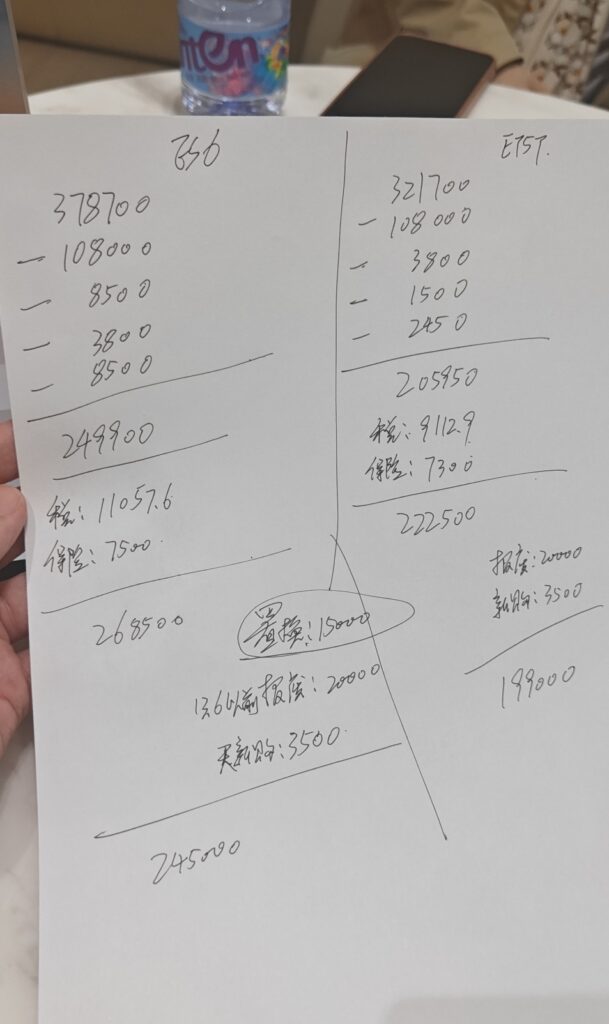 nten
ES6
378700
— 108000
— 8500
— 3800
— 8500
249900
税: 11057.6
保险: 7500
268500
置换: 15000
13.6以前报废: 20000
买新购: 3500
245000
ET5T.
321700
— 108000
— 3800
— 1500
— 2450
205950
税: 9112.9
保险: 7300
222500
报废: 20000
新购: 3500
199000